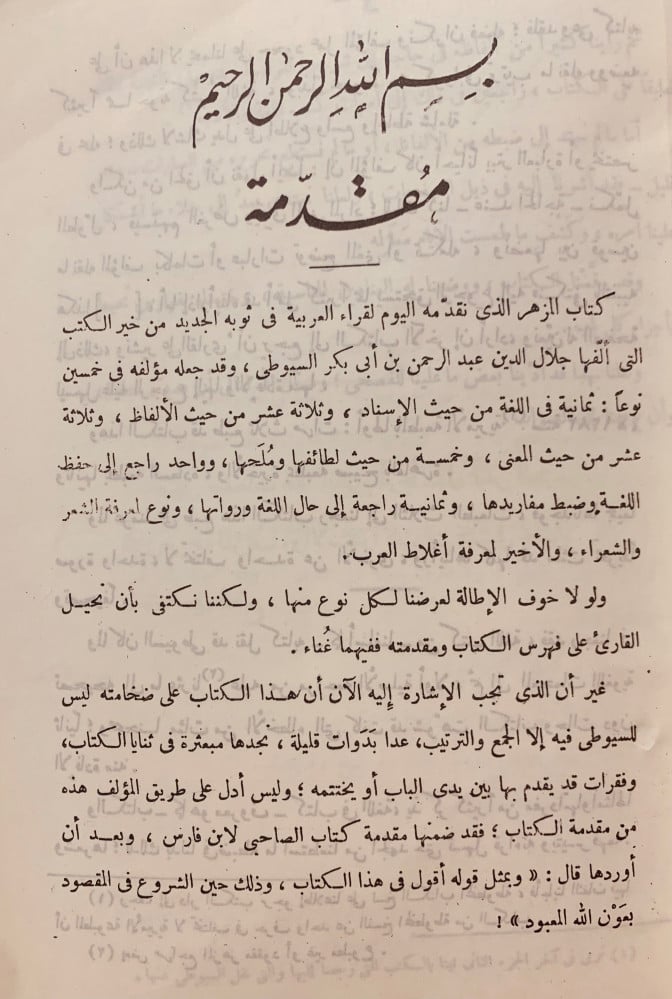 بسم الله الرحمن الرحيم
مُقدّمة
كتاب المزهر الذى نقدّمه اليوم لقراء العربية فى ثوبه الجديد من خير الكتب
التى ألّفها جلال الدين عبد الرحمن بن أبى بكر السيوطى ، وقد جعله مؤلفه فى خمسين
نوعاً : ثمانية فى اللغة من حيث الإسناد ، وثلاثة عشر من حيث الألفاظ ، وثلاثة
عشر من حيث المعنى ، وخمسة من حيث لطائفها ومُلَحها ، وواحد راجع إلى حفظ
اللغة وضبط مفاريدها ، وثمانية راجعة إلى حال اللغة ورواتها ، ونوع لمعرفة الشعر
والشعراء ، والأخير لمعرفة أغلاط العرب .
ولو لا خوف الإطالة لعرضنا لكل نوع منها ، ولكننا نكتفى بأن نحيل
القارئ على فهرس الكتاب ومقدمته ففيهما غُناء .
غير أن الذى تجب الإشارة إليه الآن أن هذا الكتاب على ضخامته ليس
للسيوطى فيه إلا الجمع والترتيب، عدا بَدَوات قليلة ، نجدها مبعثرة فى ثنايا الكتاب،
وفقرات قد يقدم بها بين يدى الباب أو يختتمه ؛ وليس أدل على طريق المؤلف هذه
من مقدمة الكتاب ؛ فقد ضمنها مقدمة كتاب الصاحبي لابن فارس ، وبعد أن
أوردها قال : « وبمثل قوله أقول فى هذا الكتاب ، وذلك حين الشروع فى المقصود
بعَوْن الله المعبود » !